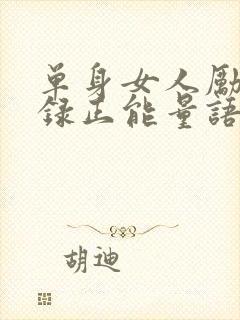 单身女人励
録正能量語
胡迪